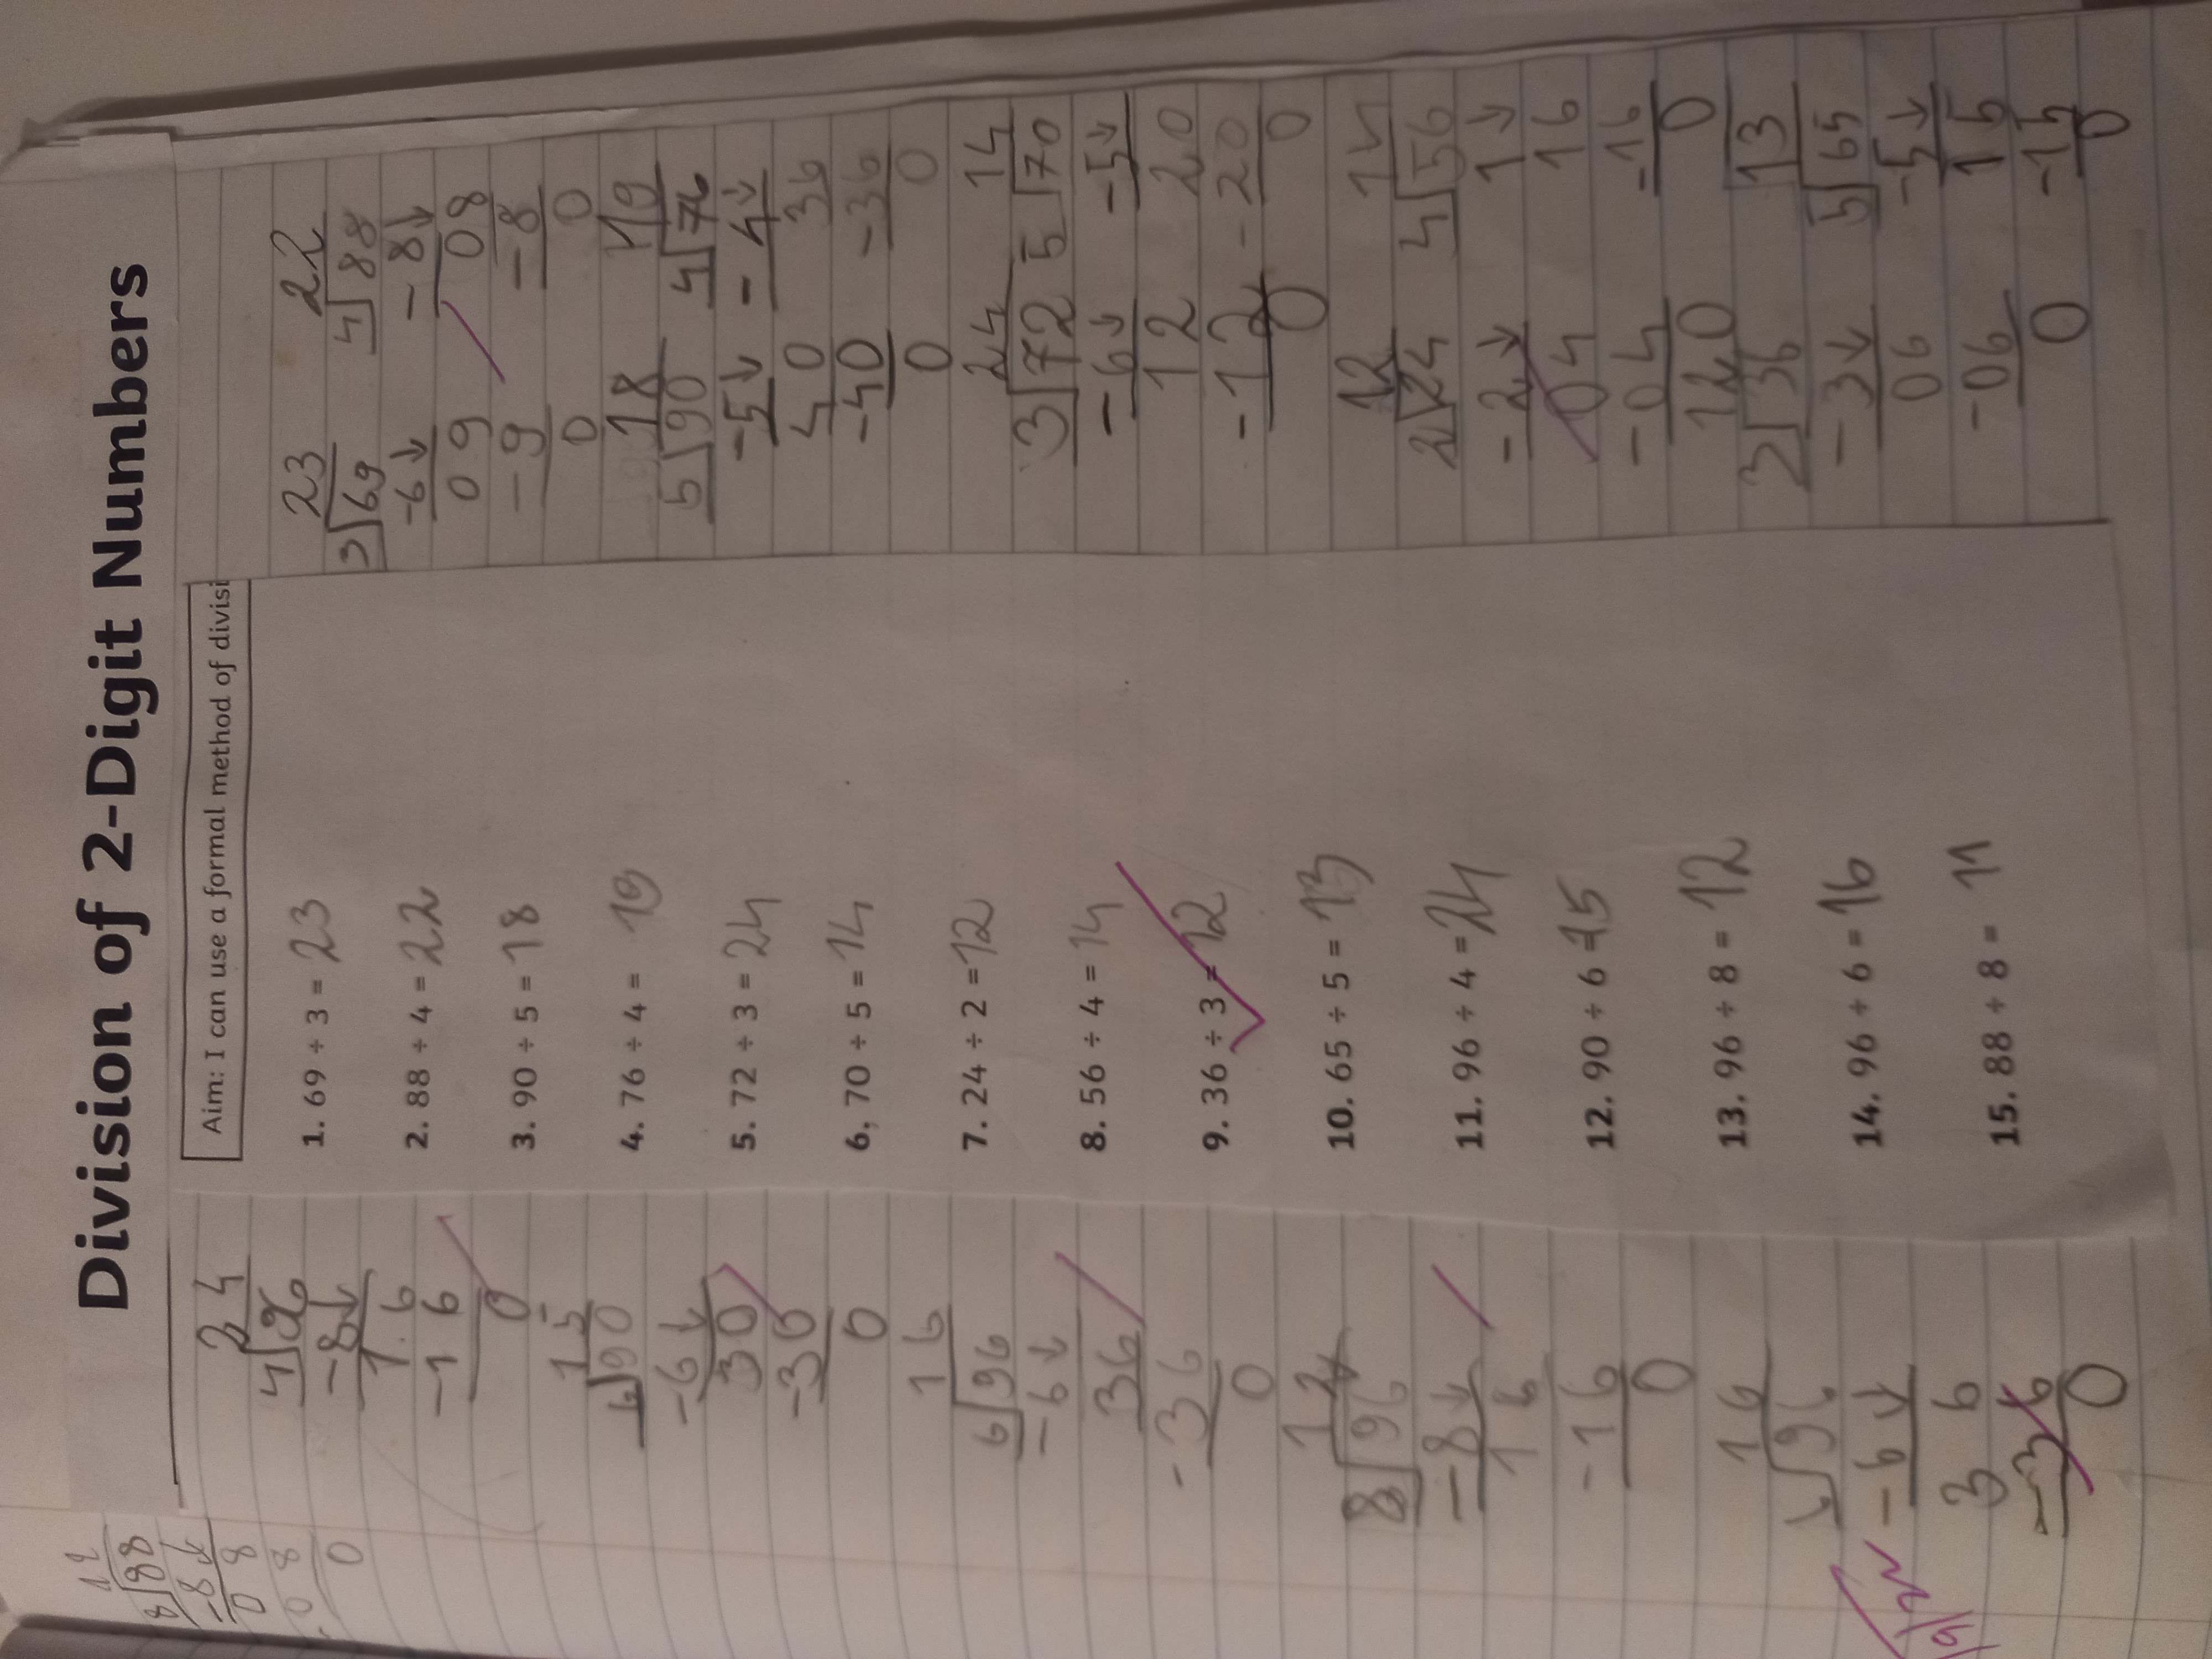 Division of 2-Digit Numbers
Aim: I can use a formal method of divisi
1. 69 ÷ 3 = 23
2. 88 ÷ 4 = 22
3. 90 ÷ 5 = 18
4. 76 ÷ 4 = 19
5. 72 ÷ 3 = 24
6, 70 ÷ 5 = 14
7. 24 ÷ 2 = 12
8. 56 ÷ 4 = 14
9. 36 ÷ 3 = 12
10. 65 ÷ 5 = 13
11. 96 ÷ 4 = 24
12. 90 ÷ 6 = 15
13. 96 ÷ 8 = 12
14. 96 ÷ 6 = 16
15. 88 ÷ 8 = 11
8 88
-8↓
08
08
0
24
4 96
-8↓
16
-16
0
15
6 90
-6↓
30
-30
0
16
6 96
-6↓
36
-36
0
12
8 96
-8↓
16
-16
0
16
96
-6↓
36
-36
0
23
3 69
-6↓
09
-9
0
22
4 88
-8↓
08
-8
0
18
5 90
-5↓
40
-40
0
19
4 76
-4↓
36
-36
0
24
3 72
-6↓
12
-12
0
14
5 70
-5↓
20
-20
0
12
2 24
-2↓
04
-04
0
14
4 56
1↓
16
-16
0
12
3 36
-3↓
06
-06
0
13
5 65
-5↓
15
-15
0